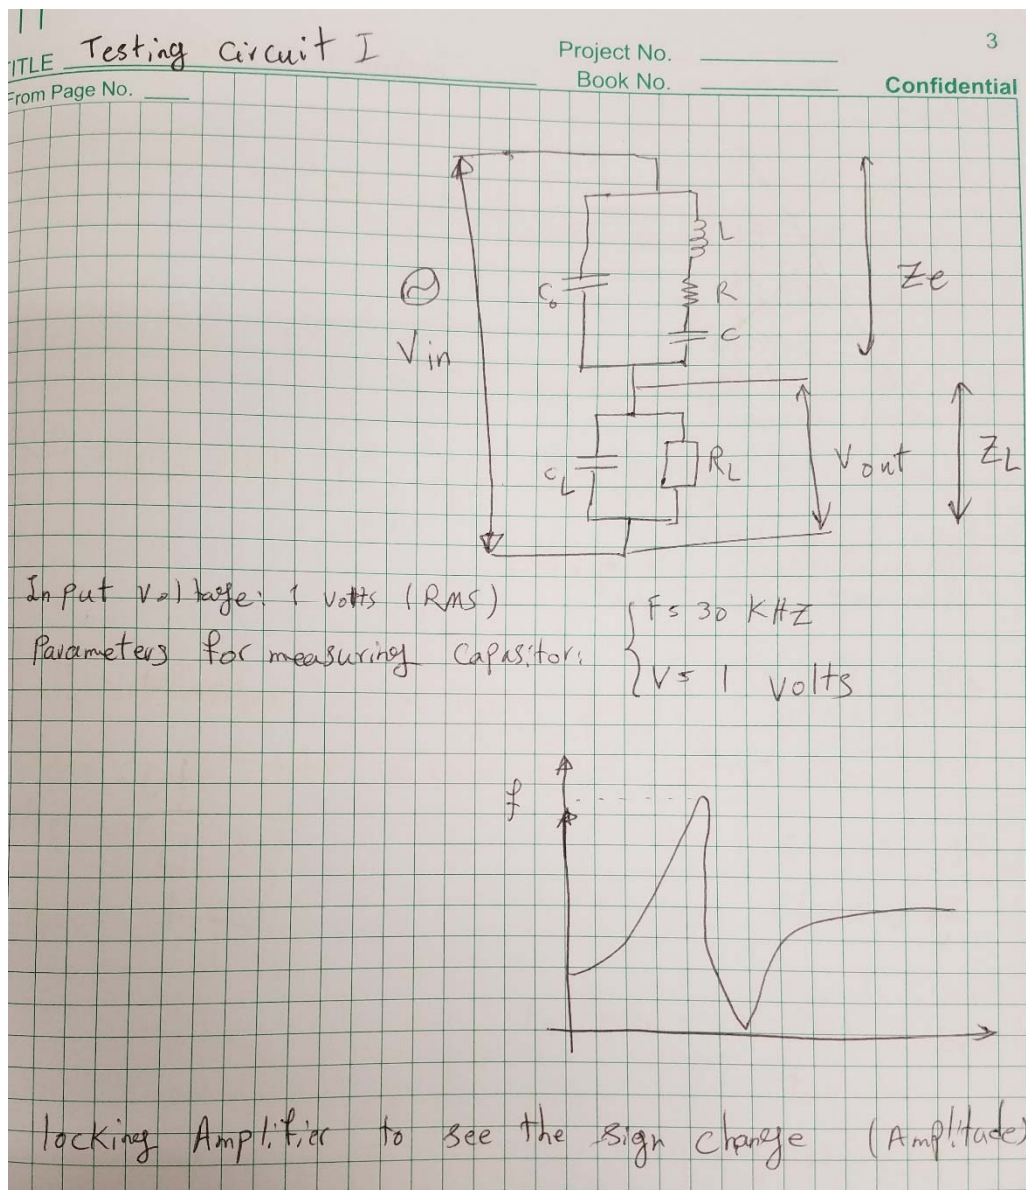 TITLE Testing Circuit I
Project No.
3
From Page No.
Book No.
Confidential
L
C₀
R
C
Ze
Vin
CL
RL
Vout
ZL
Input Voltage: 1 volts (RMS)
F= 30 KHZ
Parameters for measuring Capasitor:
V= 1 volts
f
locking Amplifier to see the sign change (Amplitude)